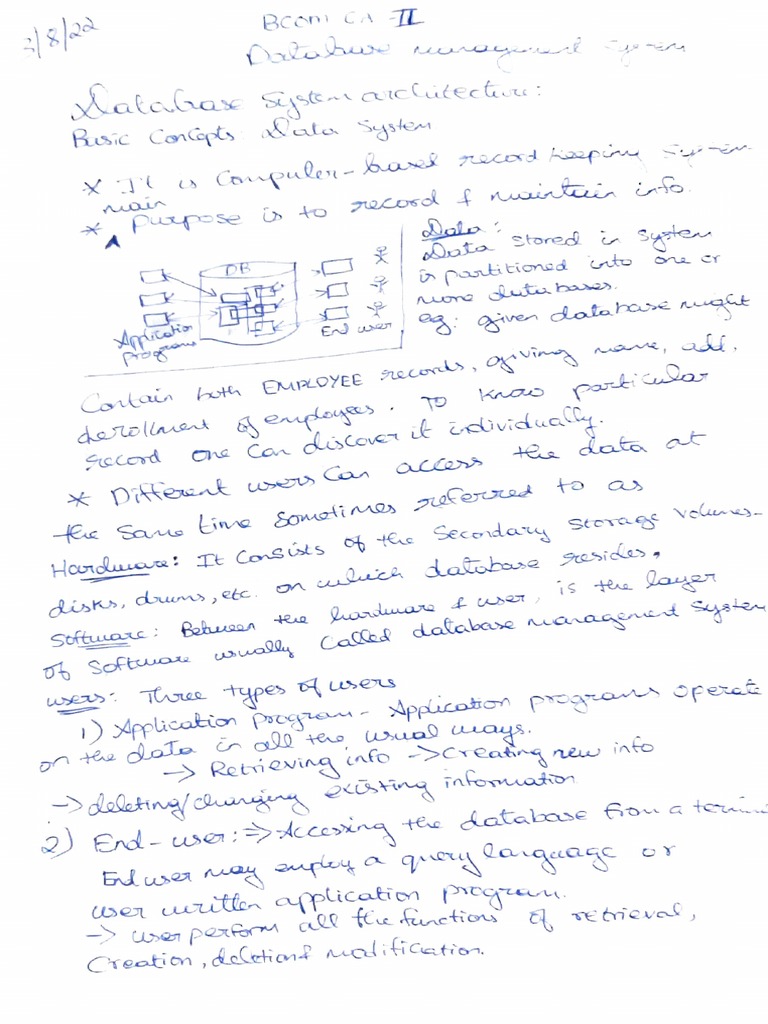 /8/22
BCom CA-II
Database management System
Database System architecture:
Basic Concepts Data System
* It is Computer-based record keeping System
main
* ^ Purpose is to record & maintain info.
DB
Application
programs
End user
Data:
Data stored in system
is partitioned into one or
more databases.
eg: given database might
Contain both EMPLOYEE records, giving name, add,
derollment of employees. To know particular
record one can discover it individually.
* Different users can access the data at
the same time sometimes referred to as
Hardware: It consists of the Secondary Storage Volumes-
disks, drums, etc. on which database resides.
Software: Between the hardware & user, is the layer
of Software usually Called database management system
users: Three types of users
1) Application program - Application programs operate
on the data in all the usual ways.
-> Retrieving info -> Creating new info
-> deleting/changing existing information
2) End-user: => Accessing the database from a
End user may employ a query language or
user written application program.
-> user perform all the functions of retrieval,
Creation, deletion & modification.